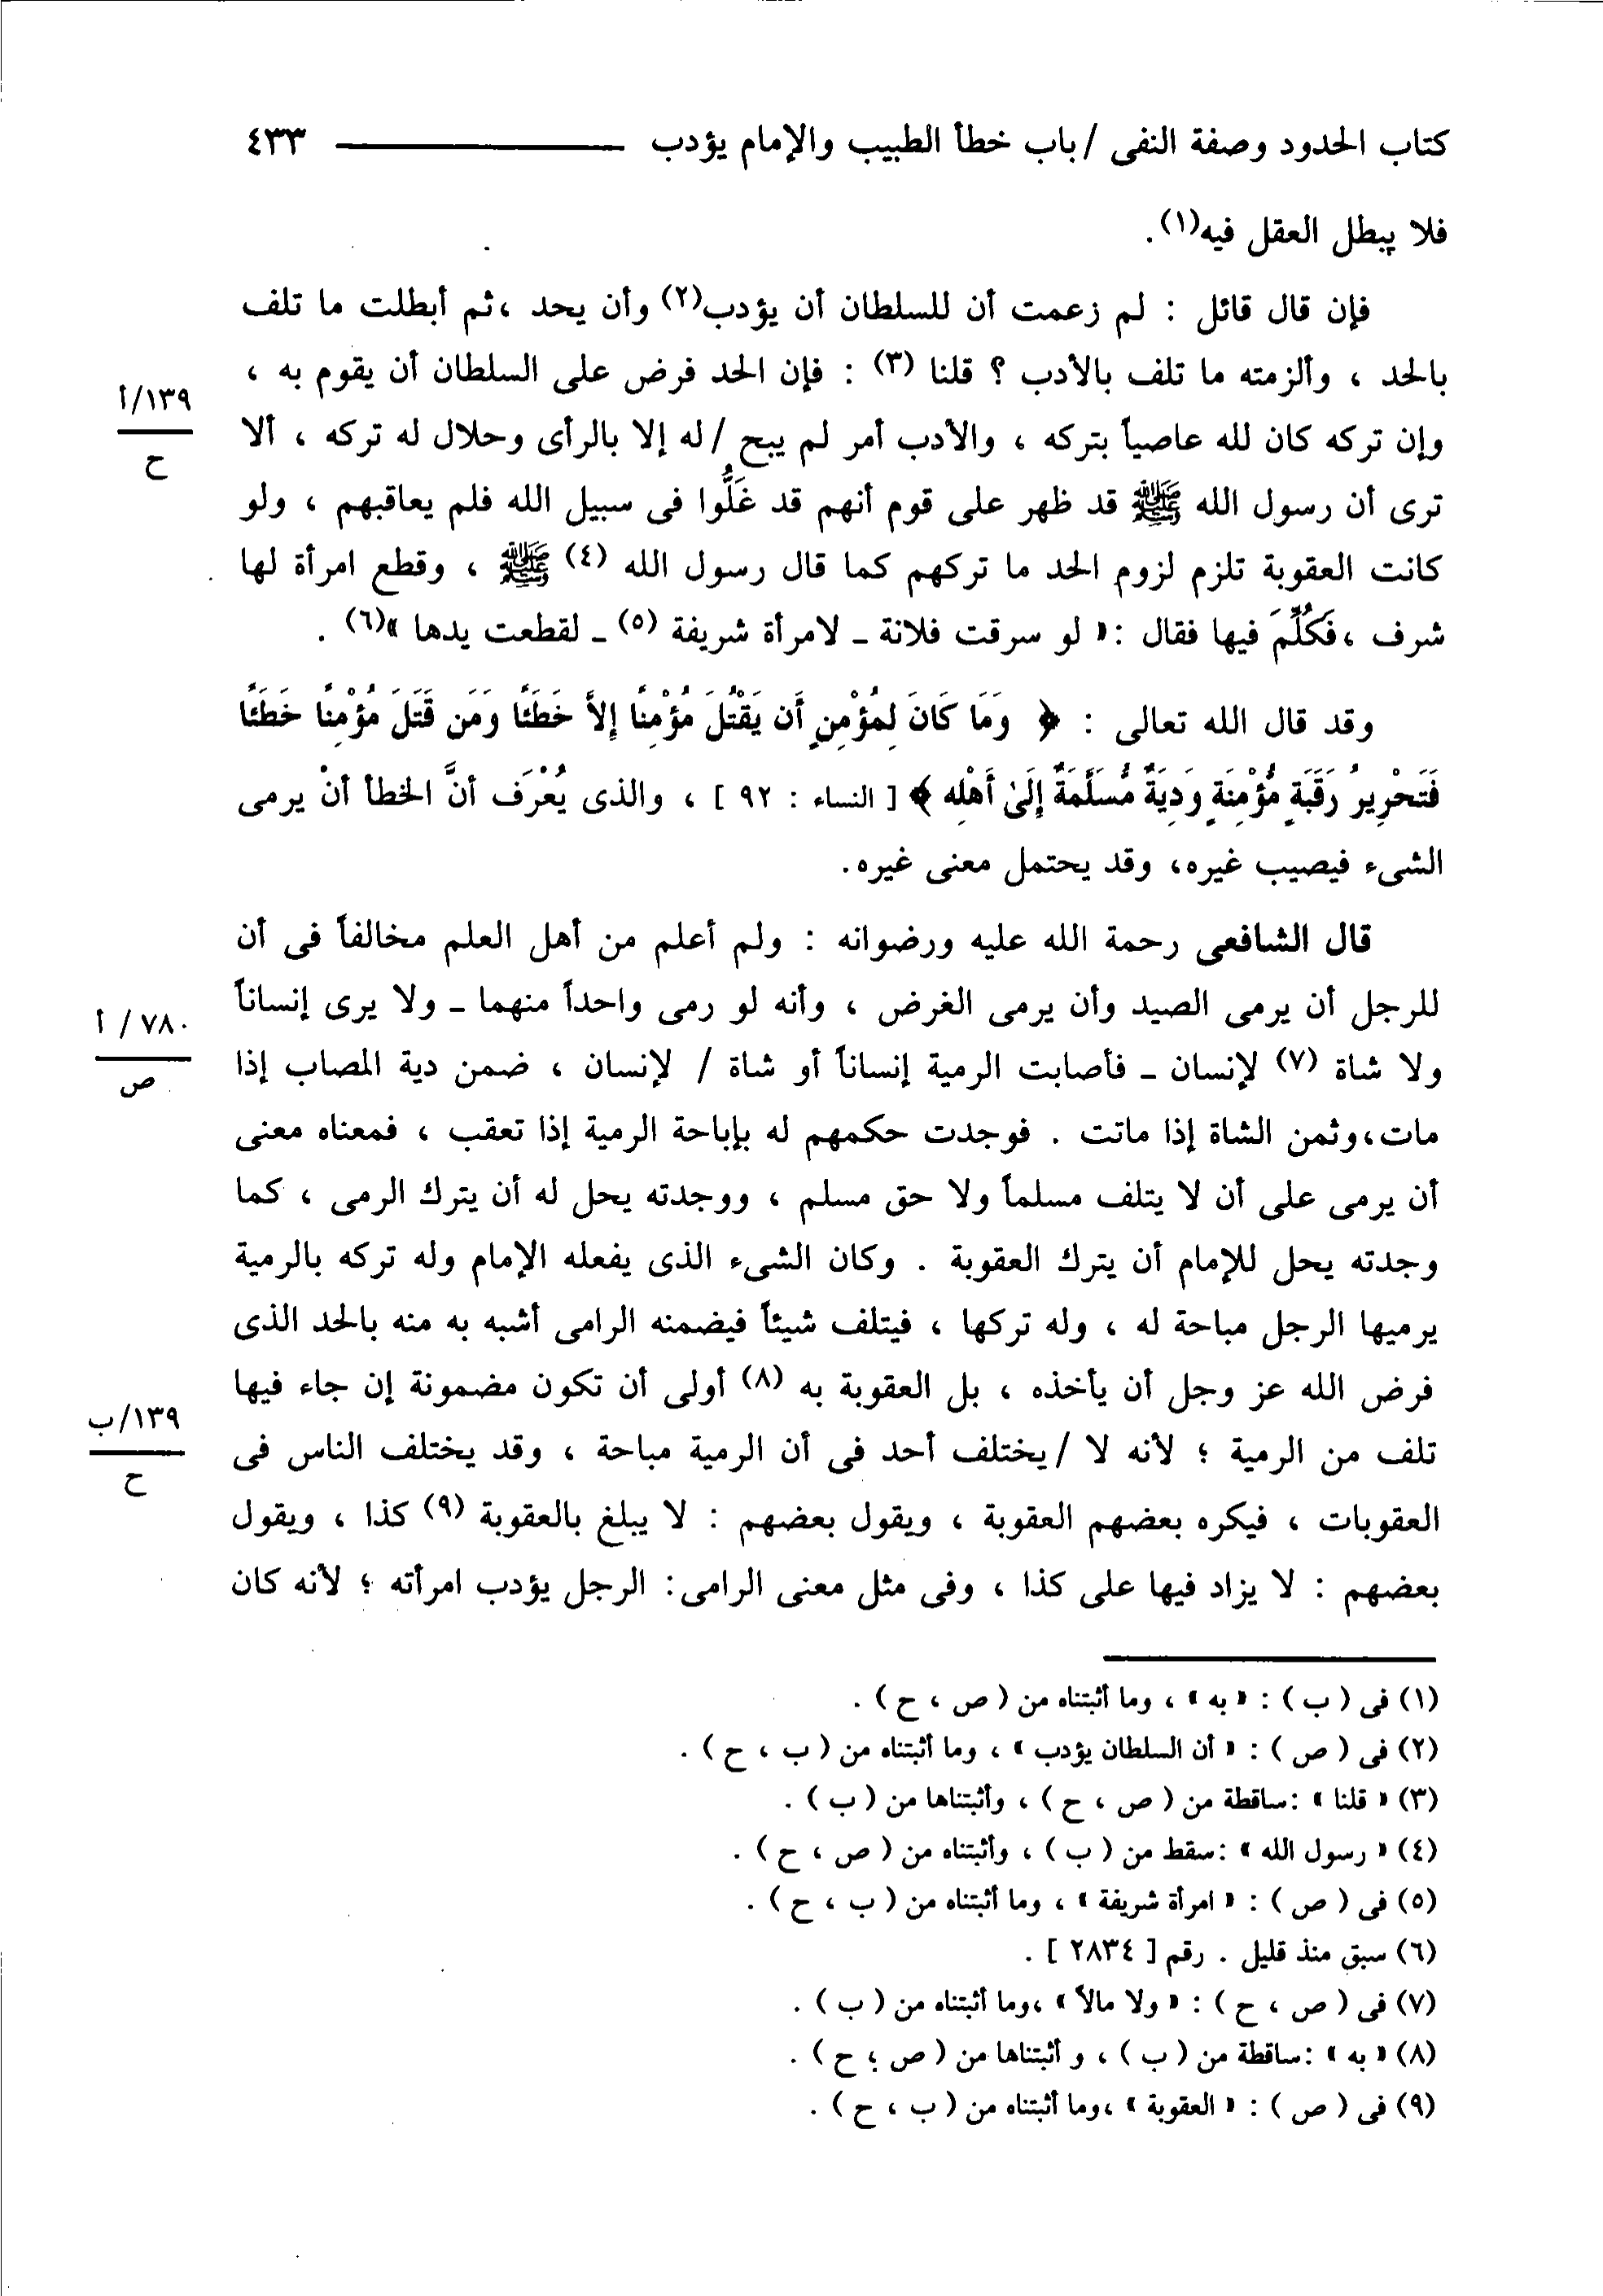 كتاب الحدود وصفة النفى / باب خطأ الطبيب والإمام يؤدب ـــــــــــ ٤٣٣
فلا يبطل العقل فيه(١).
فإن قال قائل : لم زعمت أن للسلطان أن يؤدب(٢) وأن يحد ، ثم أبطلت ما تلف
بالحد ، وألزمته ما تلف بالأدب ؟ قلنا (٣) : فإن الحد فرض على السلطان أن يقوم به ،
١٣٩/أ
وإن تركه كان لله عاصياً بتركه ، والأدب أمر لم يبح / له إلا بالرأى وحلال له تركه ، ألا
ح
ترى أن رسول الله ﷺ قد ظهر على قوم أنهم قد غَلُّوا فى سبيل الله فلم يعاقبهم ، ولو
كانت العقوبة تلزم لزوم الحد ما تركهم كما قال رسول الله (٤) ﷺ ، وقطع امرأة لها
شرف ، فَكُلِّمَ فيها فقال : « لو سرقت فلانة ـ لامرأة شريفة (٥) ـ لقطعت يدها »(٦) .
وقد قال الله تعالى : ﴿ وَمَا كَانَ لِمُؤْمِنٍ أَن يَقْتُلَ مُؤْمِنًا إِلاَّ خَطَئًا وَمَن قَتَلَ مُؤْمِنًا خَطَئًا
فَتَحْرِيرُ رَقَبَةٍ مُّؤْمِنَةٍ وَدِيَةٌ مُّسَلَّمَةٌ إِلَىٰ أَهْلِه ﴾ [ النساء : ٩٢ ] ، والذى يُعْرَف أنَّ الخطأ أنْ يرمى
الشىء فيصيب غيره، وقد يحتمل معنى غيره.
قال الشافعى رحمة الله عليه ورضوانه : ولم أعلم من أهل العلم مخالفاً فى أن
للرجل أن يرمى الصيد وأن يرمى الغرض ، وأنه لو رمى واحداً منهما ـ ولا يرى إنساناً
٧٨٠/ أ
ولا شاة (٧) لإنسان ـ فأصابت الرمية إنساناً أو شاة / لإنسان ، ضمن دية المصاب إذا
ص
مات، وثمن الشاة إذا ماتت . فوجدت حكمهم له بإباحة الرمية إذا تعقب ، فمعناه معنى
أن يرمى على أن لا يتلف مسلماً ولا حق مسلم ، ووجدته يحل له أن يترك الرمى ، كما
وجدته يحل للإمام أن يترك العقوبة . وكان الشىء الذى يفعله الإمام وله تركه بالرمية
يرميها الرجل مباحة له ، وله تركها ، فيتلف شيئاً فيضمنه الرامى أشبه به منه بالحد الذى
فرض الله عز وجل أن يأخذه ، بل العقوبة به (٨) أولى أن تكون مضمونة إن جاء فيها
١٣٩/ب
تلف من الرمية ؛ لأنه لا / يختلف أحد فى أن الرمية مباحة ، وقد يختلف الناس فى
ح
العقوبات ، فيكره بعضهم العقوبة ، ويقول بعضهم : لا يبلغ بالعقوبة (٩) كذا ، ويقول
بعضهم : لا يزاد فيها على كذا ، وفى مثل معنى الرامى: الرجل يؤدب امرأته ؛ لأنه كان
(١) فى ( ب ) : « به » ، وما أثبتناه من ( ص ، ح ) .
(٢) فى ( ص ) : « أن السلطان يؤدب » ، وما أثبتناه من ( ب ، ح ) .
(٣) « قلنا » : ساقطة من ( ص ، ح ) ، وأثبتناها من ( ب ) .
(٤) « رسول الله » : سقط من ( ب ) ، وأثبتناه من ( ص ، ح ) .
(٥) فى ( ص ) : « امرأة شريفة » ، وما أثبتناه من ( ب ، ح ) .
(٦) سبق منذ قليل . رقم [ ٢٨٣٤ ] .
(٧) فى ( ص ، ح ) : « ولا مالاً » ، وما أثبتناه من ( ب ) .
(٨) « به » : ساقطة من ( ب ) ، و أثبتناها من ( ص ؛ ح ) .
(٩) فى ( ص ) : « العقوبة » ، وما أثبتناه من ( ب ، ح ) .